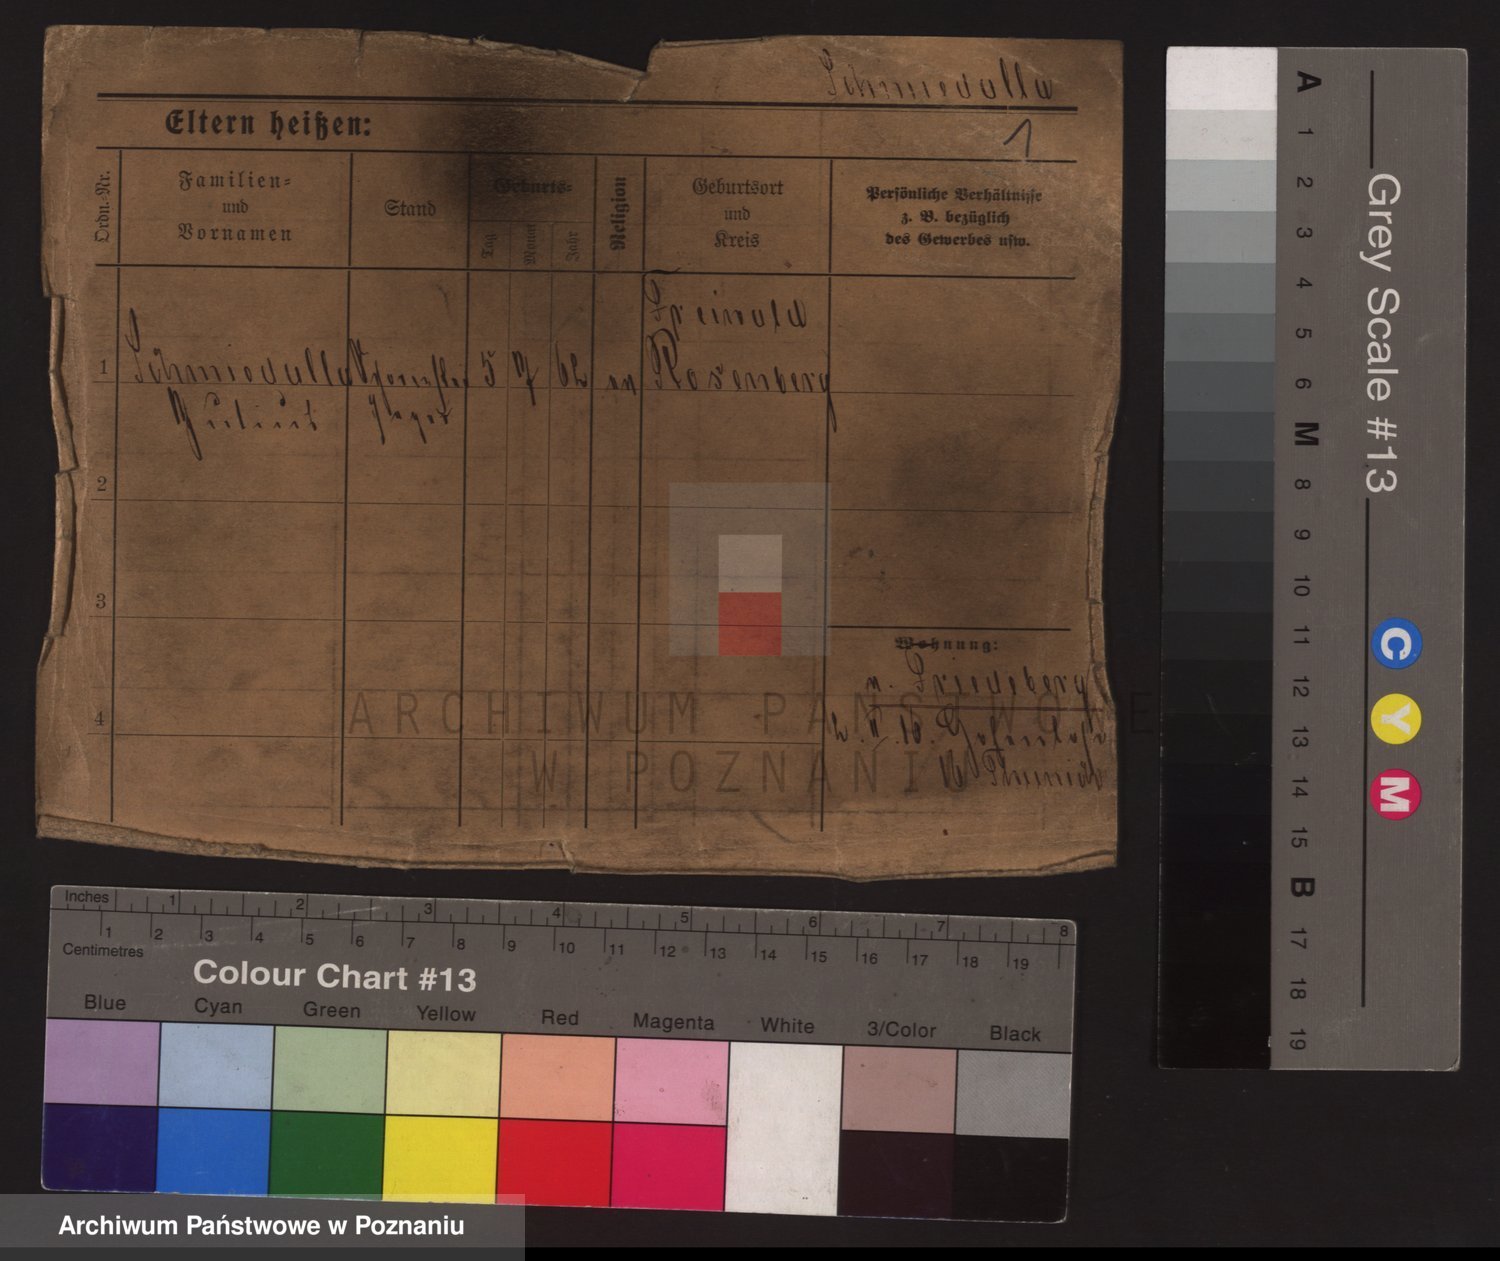 Schmedulla
Eltern heißen:
1
Ordn.-Nr.
Familien-
und
Vornamen
Stand
Geburts-
Tag
Monat
Jahr
Religion
Geburtsort
und
Kreis
Persönliche Verhältnisse
z. B. bezüglich
des Gewerbes usw.
1
Julius
5
62
ev
Rosenberg
2
3
4
Wohnung:
n. Friedeberg
ARCHIWUM PAŃSTWOWE
W POZNANIU
A 1 2 3 4 5 6 M 8 9 10 11 12 13 14 15 B 17 18 19
Grey Scale #13
C Y M
Inches 1 2 3 4 5 6 7 8
Centimetres 1 2 3 4 5 6 7 8 9 10 11 12 13 14 15 16 17 18 19
Colour Chart #13
Blue Cyan Green Yellow Red Magenta White 3/Color Black
Archiwum Państwowe w Poznaniu